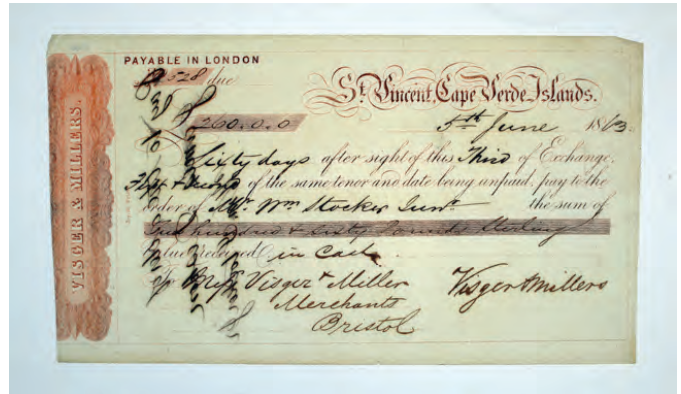 VISGER & MILLERS.
PAYABLE IN LONDON
528 due
St. Vincent, Cape Verde Islands.
260.0.0
5th June 1863.
Sixty days after sight of this Third of Exchange.
First & Second of the same tenor and date being unpaid, pay to the
order of Mr. Wm Stocker Junr. the sum of
Two hundred & sixty Pounds Sterling
Value received in Cash
To Visger & Miller
Visger & Millers
Merchants
Bristol